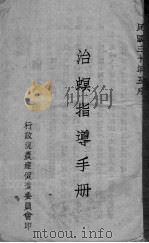 民國三十年五月
治螟指導手册
行政院農產促進委員會印